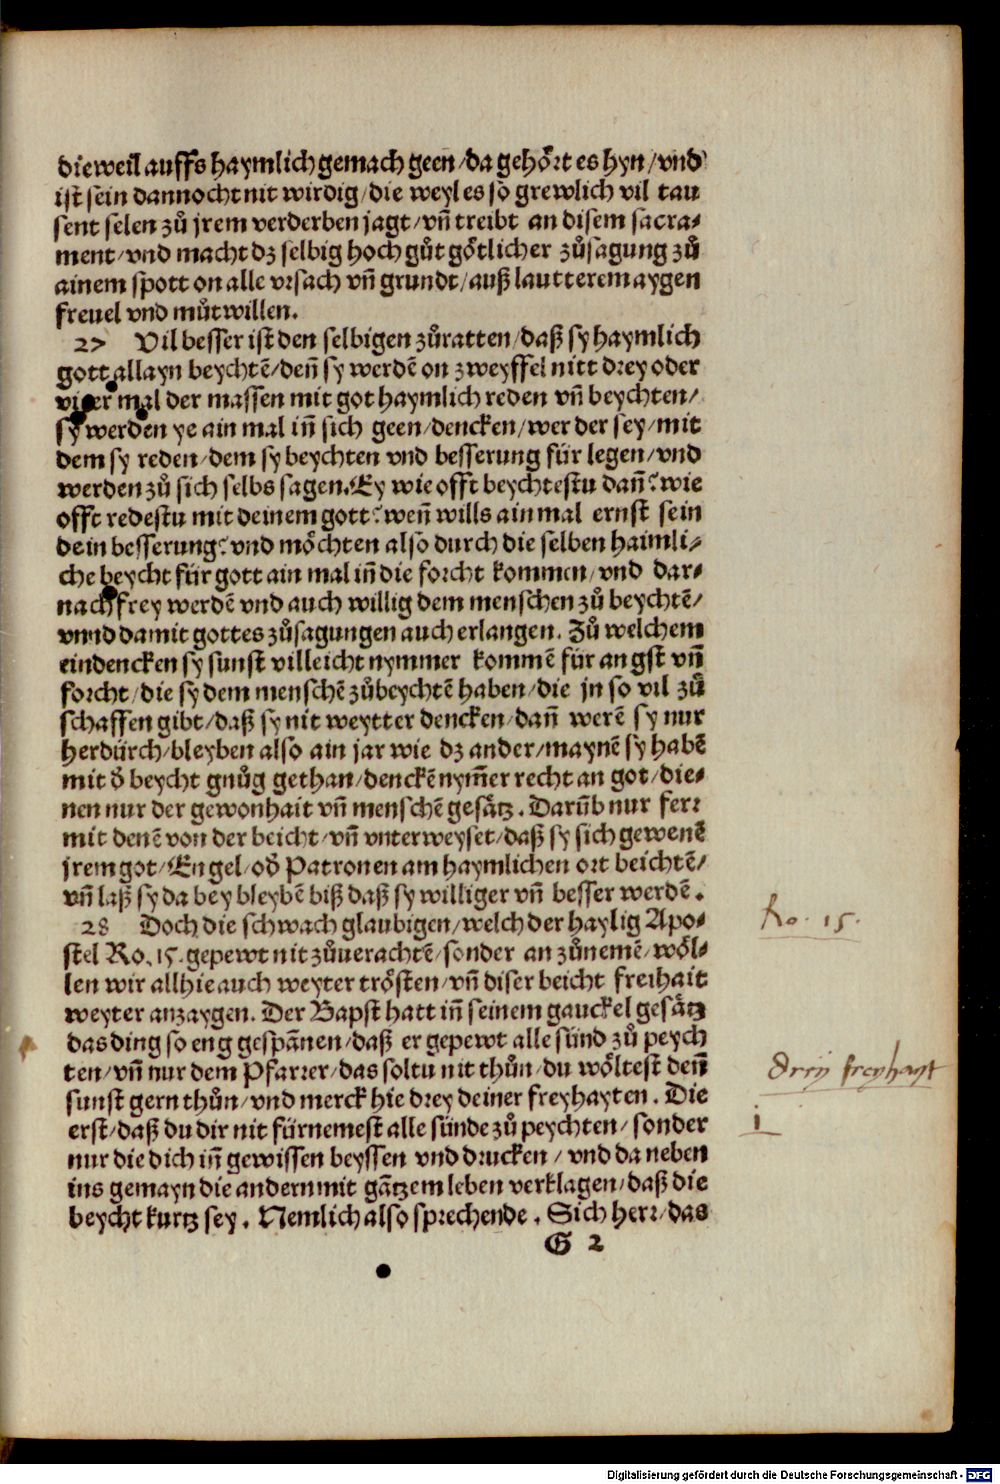 dieweil auffs haymlich gemach geen/da gehört es hyn/vnd
ist sein dannocht nit wirdig/die weyl es so grewlich vil tau
sent selen zů jrem verderben jagt/vñ treibt an disem sacra-
ment/vnd macht dz selbig hoch gůt götlicher zůsagung zů
ainem spott on alle vrsach vñ grundt/auß lautterem aygen
freuel vnd můtwillen.
27 Vil besser ist den selbigen zůratten/daß sy haymlich
gott allayn beychtẽ/deñ sy werdẽ on zweyffel nitt drey oder
vierr mal der massen mit got haymlich reden vñ beychten/
sy werden ye ain mal iñ sich geen/dencken/wer der sey/mit
dem sy reden/dem sy beychten vnd besserung für legen/vnd
werden zů sich selbs sagen. Ey wie offt beychtestu dañ? wie
offt redestu mit deinem gott? weñ wills ain mal ernst sein
dein besserung? vnd möchten also durch die selben haimli-
che beycht für gott ain mal iñ die forcht kommen/vnd dar-
nach frey werdẽ vnd auch willig dem menschen zů beychtẽ/
vnnd damit gottes zůsagungen auch erlangen. Zů welchem
eindencken sy sunst villeicht nymmer kommẽ für angst vñ
forcht/die sy dem menschẽ zůbeychtẽ haben/die jn so vil zů
schaffen gibt/daß sy nit weytter dencken/dañ werẽ sy nur
herdürch/bleyben also ain jar wie dz ander/maynẽ sy habẽ
mit ð beycht gnůg gethan/denckẽ nym̃er recht an got/die-
nen nur der gewonhait vñ menschẽ gesätz. Darũb nur ferr
mit denẽ von der beicht/vñ vnterweyset/daß sy sich gewenẽ
jrem got/Engel/oð Patronen am haymlichen ort beichtẽ/
vñ laß sy da bey bleybẽ biß daß sy williger vñ besser werdẽ.
28 Doch die schwach glaubigen/welch der haylig Apo-
stel Ro. 15. gepewt nit zůuerachtẽ/sonder an zůnemẽ/wöl-
len wir allhie auch weyter trösten/vñ diser beicht freihait
weyter anzaygen. Der Bapst hatt iñ seinem gauckel gesätz
das ding so eng gespãnen/daß er gepewt alle sünd zů peych
ten/vñ nur dem Pfarrer/das soltu nit thůn/du wöltest deñ
sunst gern thůn/vnd merck hie drey deiner freyhayten. Die
erst/daß du dir nit fürnemest alle sünde zů peychten/sonder
nur die dich iñ gewissen beyssen vnd drucken/vnd da neben
ins gemayn die andern mit gãtzem leben verklagen/daß die
beycht kurtz sey. Nemlich also sprechende. Sich herr/das
G 2
Ro. 15.
Drij freyhayt
i
Digitalisierung gefördert durch die Deutsche Forschungsgemeinschaft - DFG